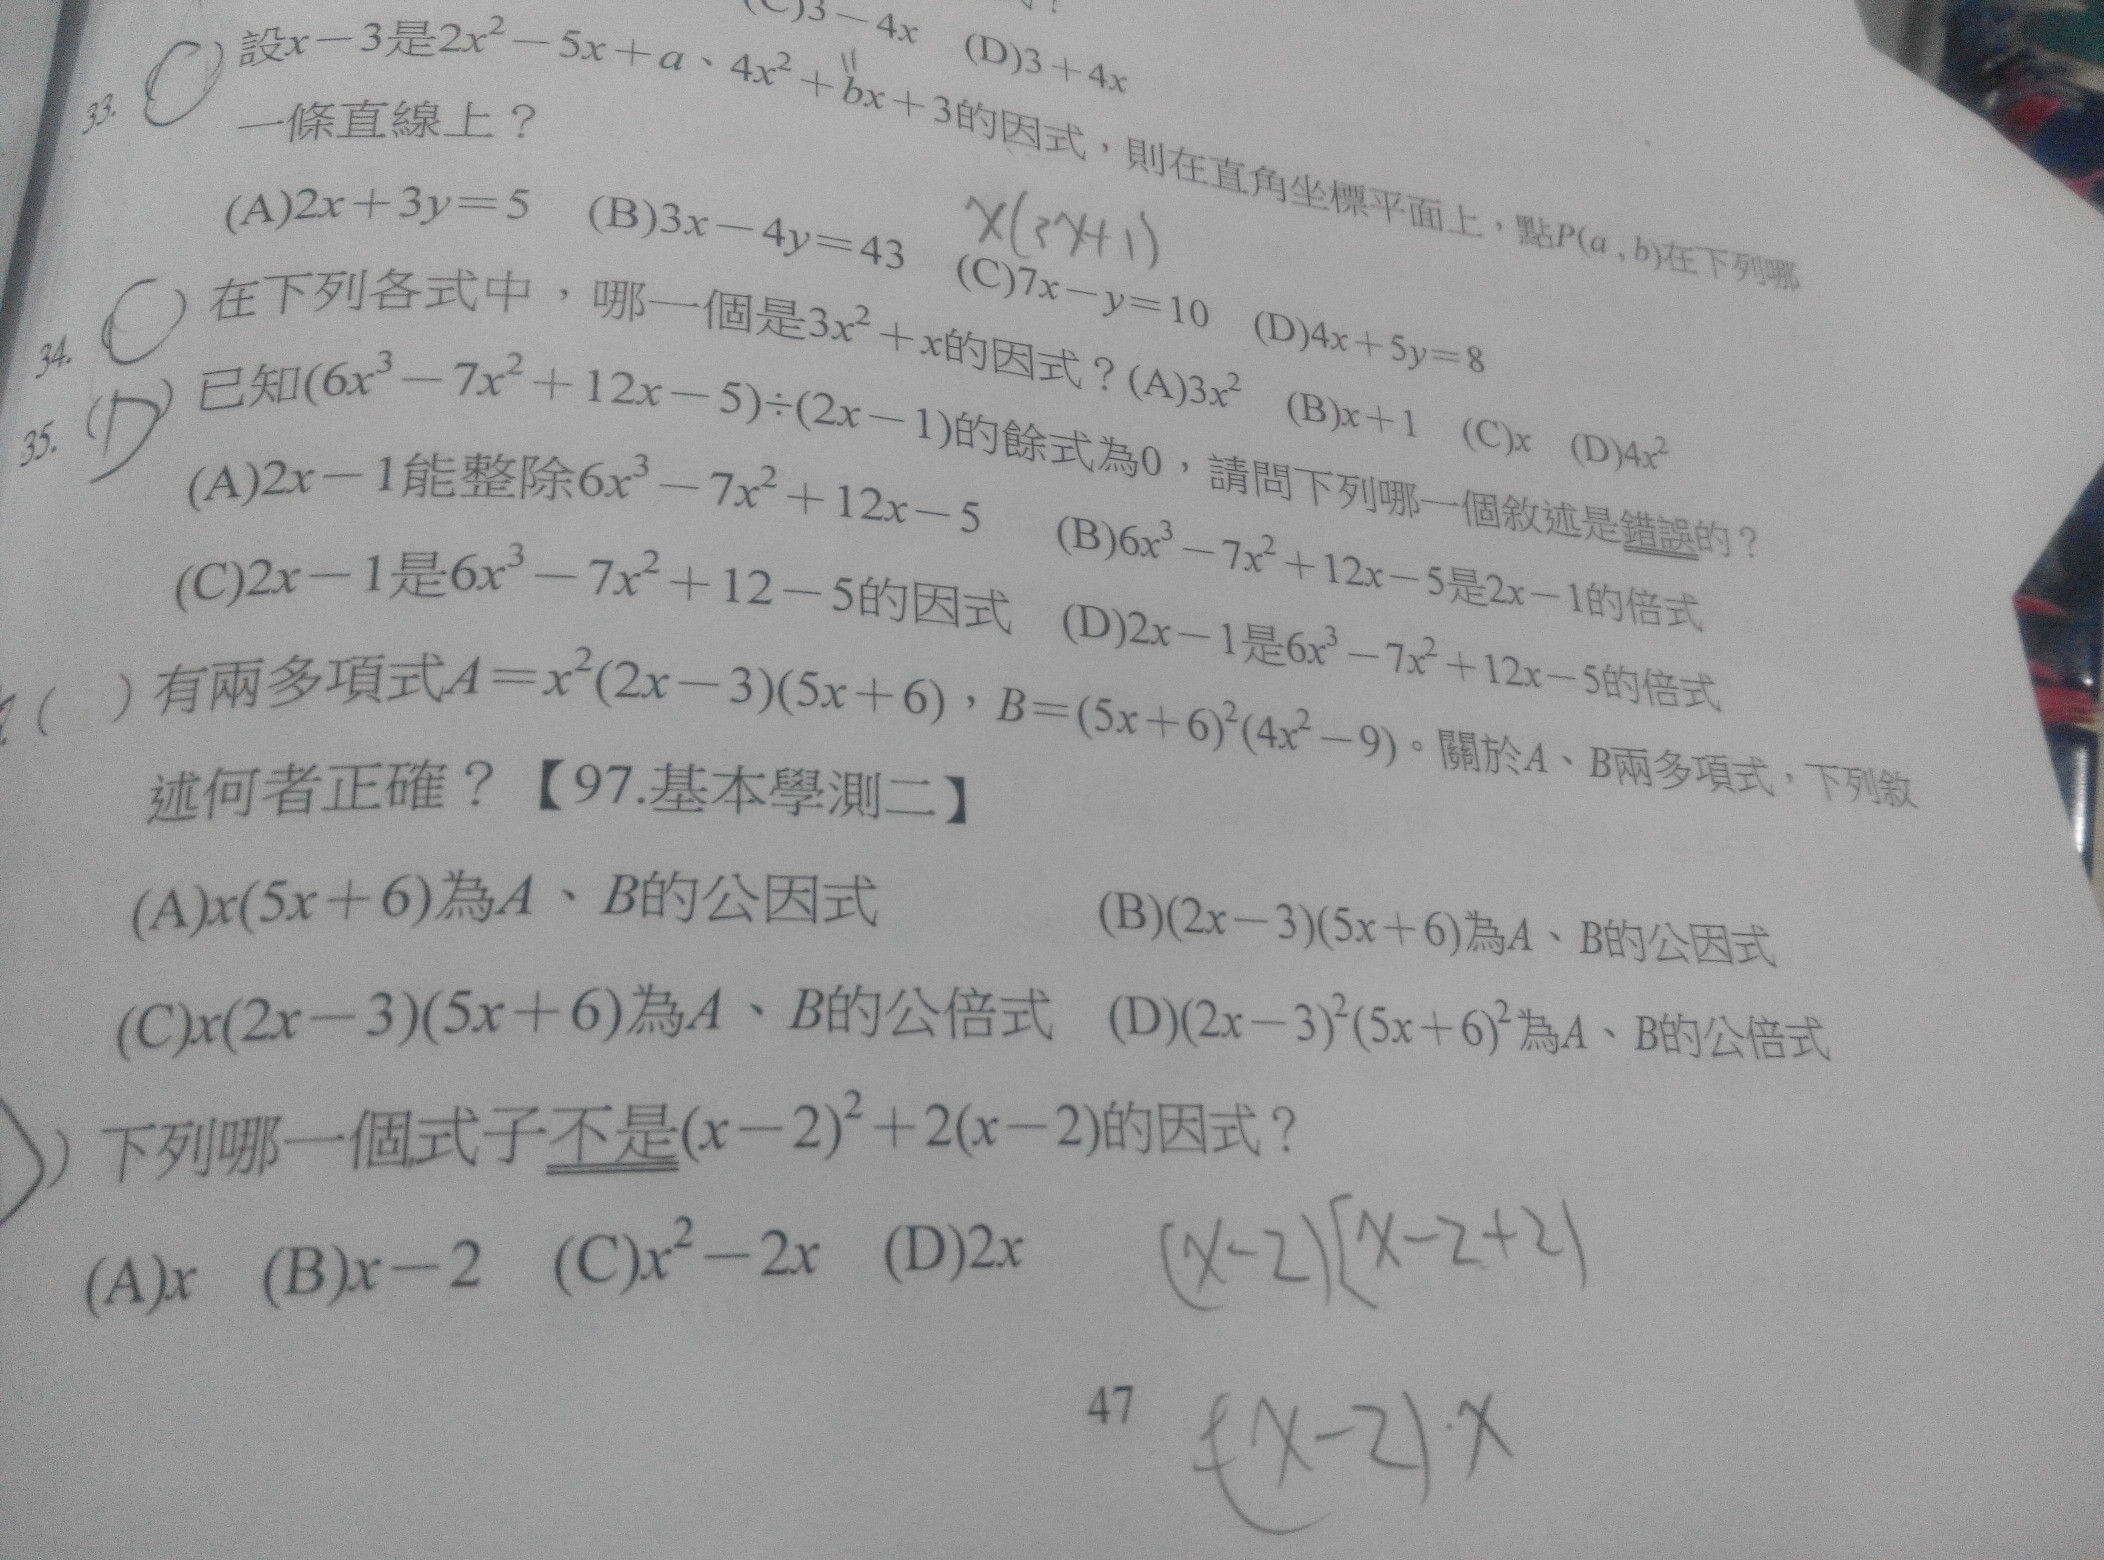 (C)3－4x (D)3＋4x
33. (C) 設x－3是2x²－5x＋a、4x²＋bx＋3的因式，則在直角坐標平面上，點P(a , b)在下列哪
一條直線上？
x(3x+1)
(A)2x＋3y＝5 (B)3x－4y＝43 (C)7x－y＝10 (D)4x＋5y＝8
34. (C) 在下列各式中，哪一個是3x²＋x的因式？(A)3x² (B)x＋1 (C)x (D)4x²
35. (D) 已知(6x³－7x²＋12x－5)÷(2x－1)的餘式為0，請問下列哪一個敘述是錯誤的？
(A)2x－1能整除6x³－7x²＋12x－5 (B)6x³－7x²＋12x－5是2x－1的倍式
(C)2x－1是6x³－7x²＋12－5的因式 (D)2x－1是6x³－7x²＋12x－5的倍式
( ) 有兩多項式A＝x²(2x－3)(5x＋6)，B＝(5x＋6)²(4x²－9)。關於A、B兩多項式，下列敘
述何者正確？【97.基本學測二】
(A)x(5x＋6)為A、B的公因式 (B)(2x－3)(5x＋6)為A、B的公因式
(C)x(2x－3)(5x＋6)為A、B的公倍式 (D)(2x－3)²(5x＋6)²為A、B的公倍式
) 下列哪一個式子不是(x－2)²＋2(x－2)的因式？
(A)x (B)x－2 (C)x²－2x (D)2x
(x-2)[x-2+2)
47
(x-2)·x